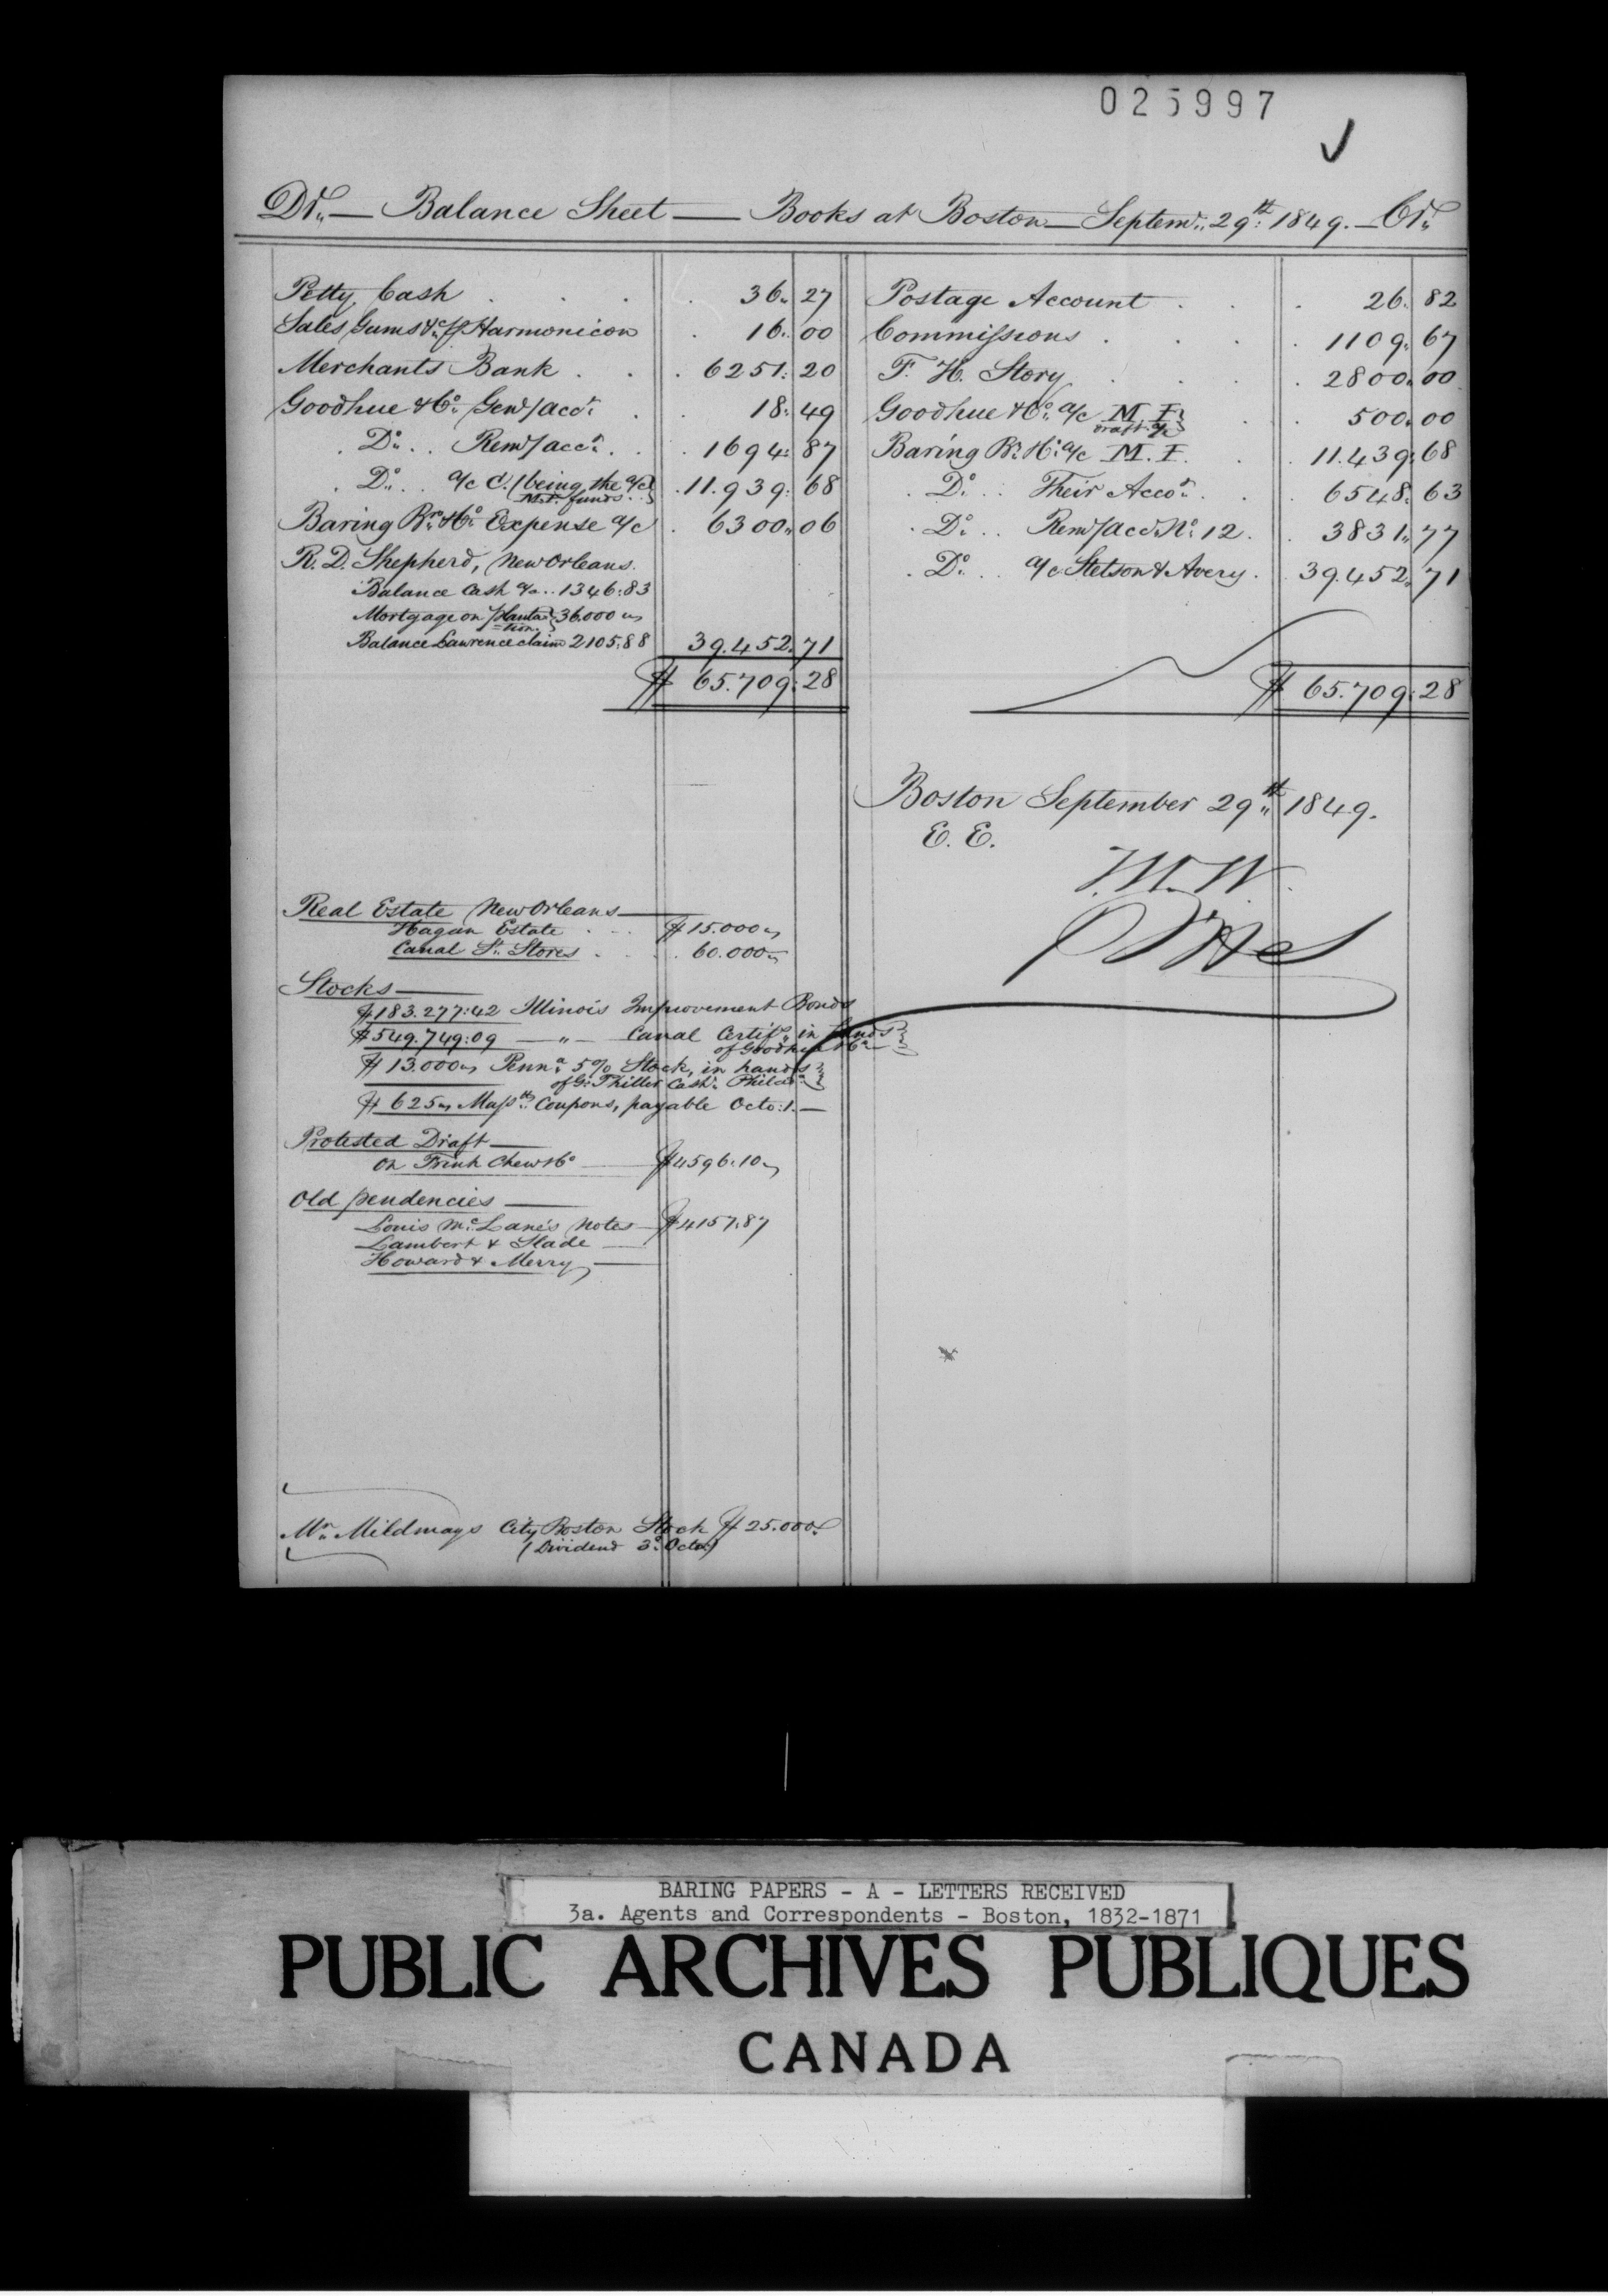 025997
Dr. — Balance Sheet — Books at Boston — Septem. 29th 1849. — Cr.
Petty Cash . . . 36. 27
Sales Gums &c p Harmonicon . 16. 00
Merchants Bank . . . 6251: 20
Goodhue & Co. Genl acct. . . 18: 49
Do. . . Reml acct. . . 1694: 87
Do. . . a/c C. (being the a/c
M.I. funds . . 11.939: 68
Baring Brs. & Co. Expense a/c . 6300. 06
R. D. Shepherd, New Orleans.
Balance Cash a/c . . 1346:83
Mortgage on planta
=tion. 36.000 "
Balance Lawrence claim 2105:88 39.452. 71
$ 65.709: 28
Postage Account . . . 26. 82
Commissions . . . 1109. 67
F. H. Story . . . 2800. 00
Goodhue & Co. a/c M. I.
Draft a/c . 500. 00
Baring Brs. & Co. a/c M. I. . 11.439: 68
Do. . . Their Accot. . . 6548. 63
Do. . . Reml acct No. 12 . . 3831. 77
Do. . . a/c Stetson & Avery . 39.452. 71
$ 65.709: 28
Boston September 29th 1849.
E. E.
Real Estate New Orleans —
Hagan Estate . . . $ 15.000 "
Canal St. Stores . . . 60.000 "
Stocks —
$183.277:42 Illinois Improvement Bonds
$549.749:09 — " — Canal Certifs. in hands
of Goodhue & Co.
$ 13.000 " Penna. 5% Stock, in hands
of G. Philler Cashr. Philda.
$ 625 " Masstts. Coupons, payable Octo: 1. —
Protested Draft —
on Frink Chew & Co — $4596.10 "
Old pendencies —
Louis McLane's Notes — $4157.87
Lambert & Slade —
Howard & Merry —
Mr. Mildmays City Boston Stock $ 25.000.
(Dividend 3o. Octo.)
BARING PAPERS - A - LETTERS RECEIVED
3a. Agents and Correspondents - Boston, 1832-1871
PUBLIC ARCHIVES PUBLIQUES
CANADA